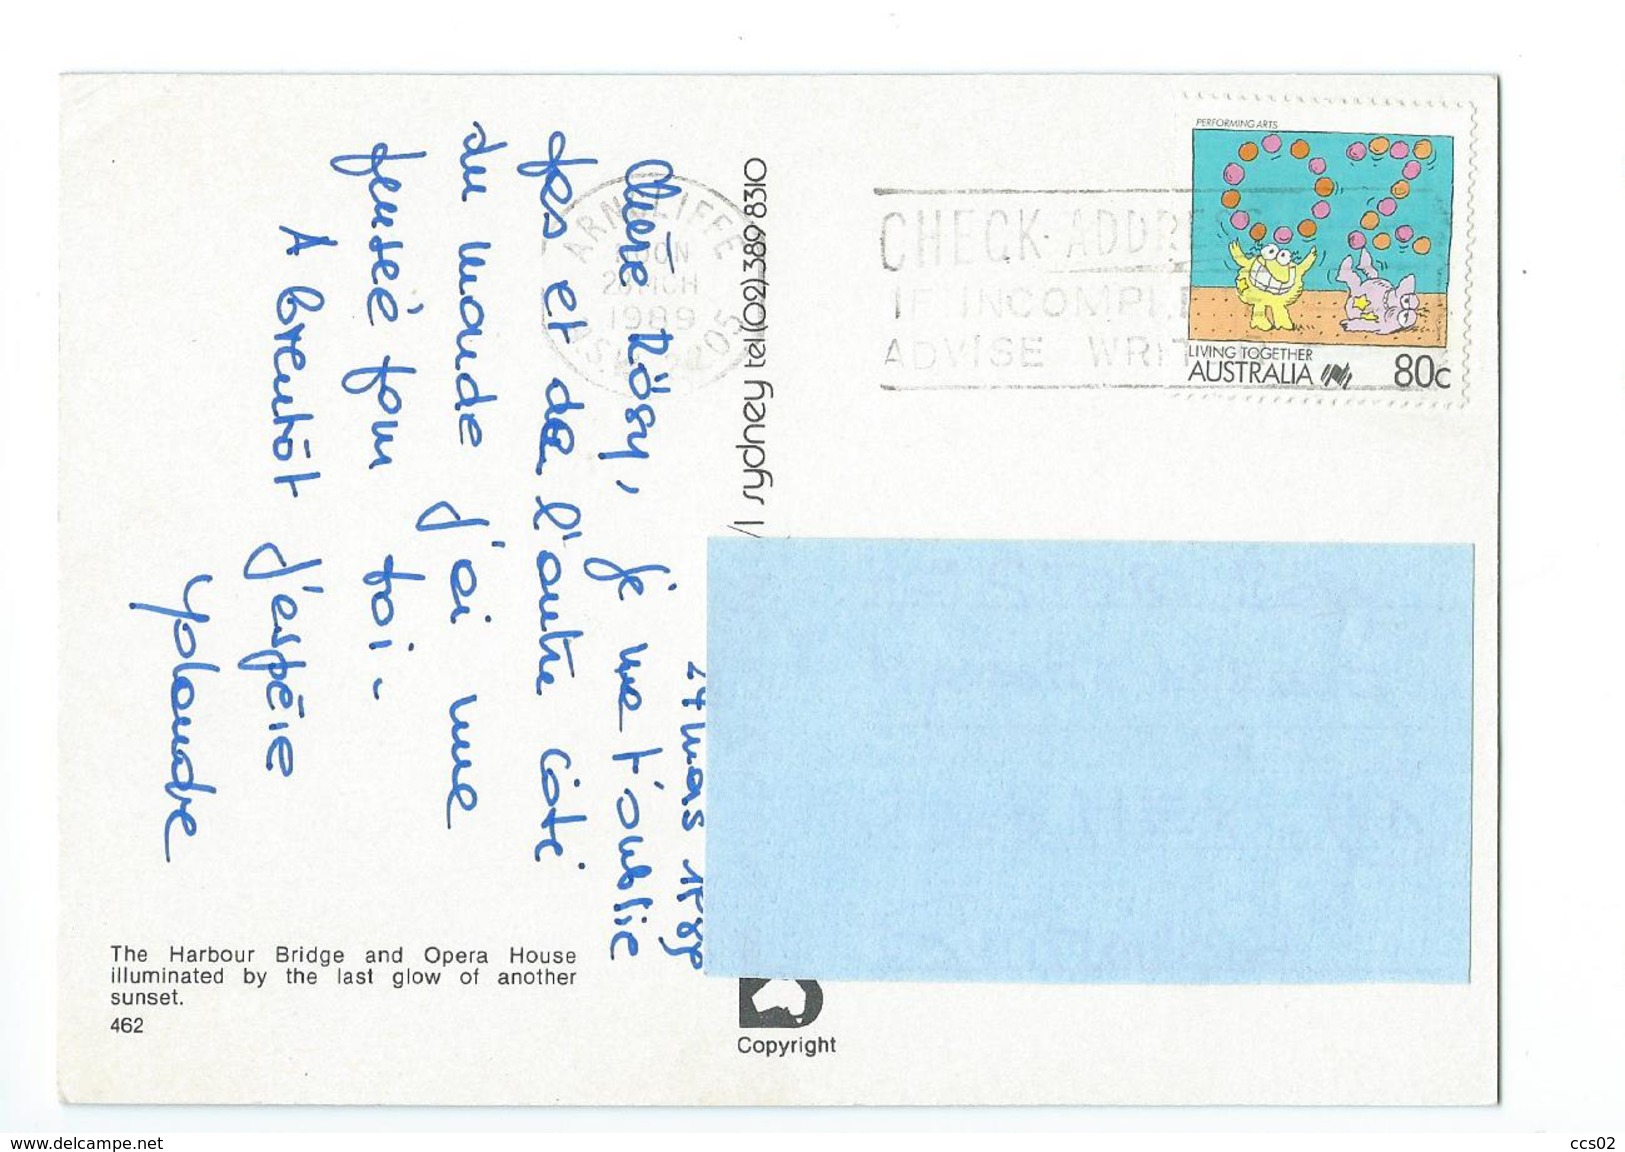 27 mars 1989
Chère Rösy, je ne t'oublie
pas et de l'autre côté
du monde j'ai une
pensée pour toi.
A bientôt j'espère
Yolande
PERFORMING ARTS
LIVING TOGETHER
AUSTRALIA
80c
CHECK ADDRESS
IF INCOMPLE
ADVISE WRIT
ARNCLIFFE
NOON
28 MCH
1989
NSW 2205
sydney tel (02) 389 8310
The Harbour Bridge and Opera House
illuminated by the last glow of another
sunset.
462
Copyright
www.delcampe.net
ccs02